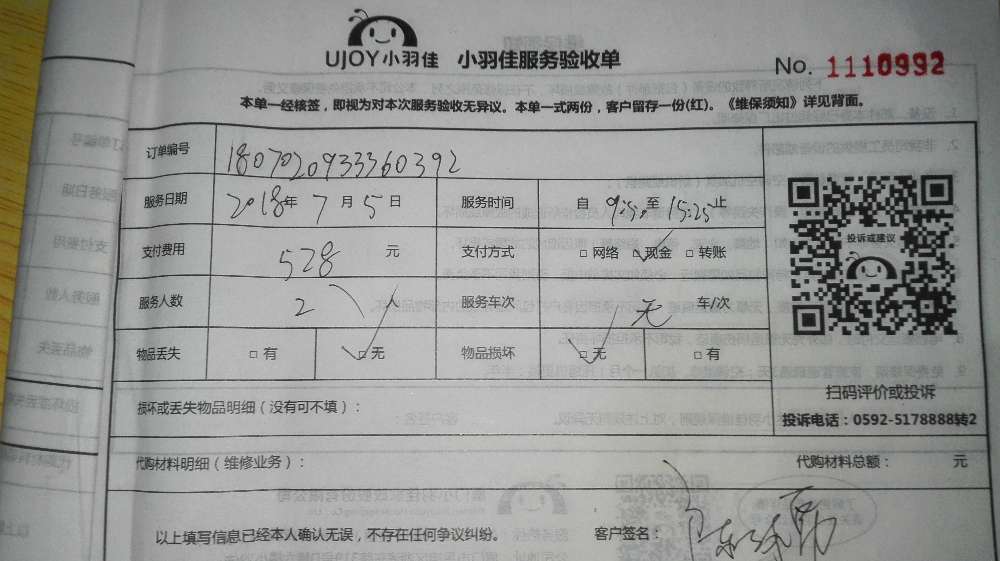 UJOY小羽佳 小羽佳服务验收单
No. 1110992
本单一经核签，即视为对本次服务验收无异议。本单一式两份，客户留存一份(红)。《维保须知》详见背面。
订单编号 1807020933360392
服务日期 2018年7月5日 服务时间 自 9:5 至 15:25止
支付费用 528 元 支付方式 □网络 □现金 □转账
服务人数 2 服务车次 无 车/次
物品丢失 □有 □无 物品损坏 □无 □有
投诉或建议
扫码评价或投诉
投诉电话：0592-5178888转2
损坏或丢失物品明细（没有可不填）：
代购材料明细（维修业务）： 代购材料总额： 元
以上填写信息已经本人确认无误，不存在任何争议纠纷。 客户签名：